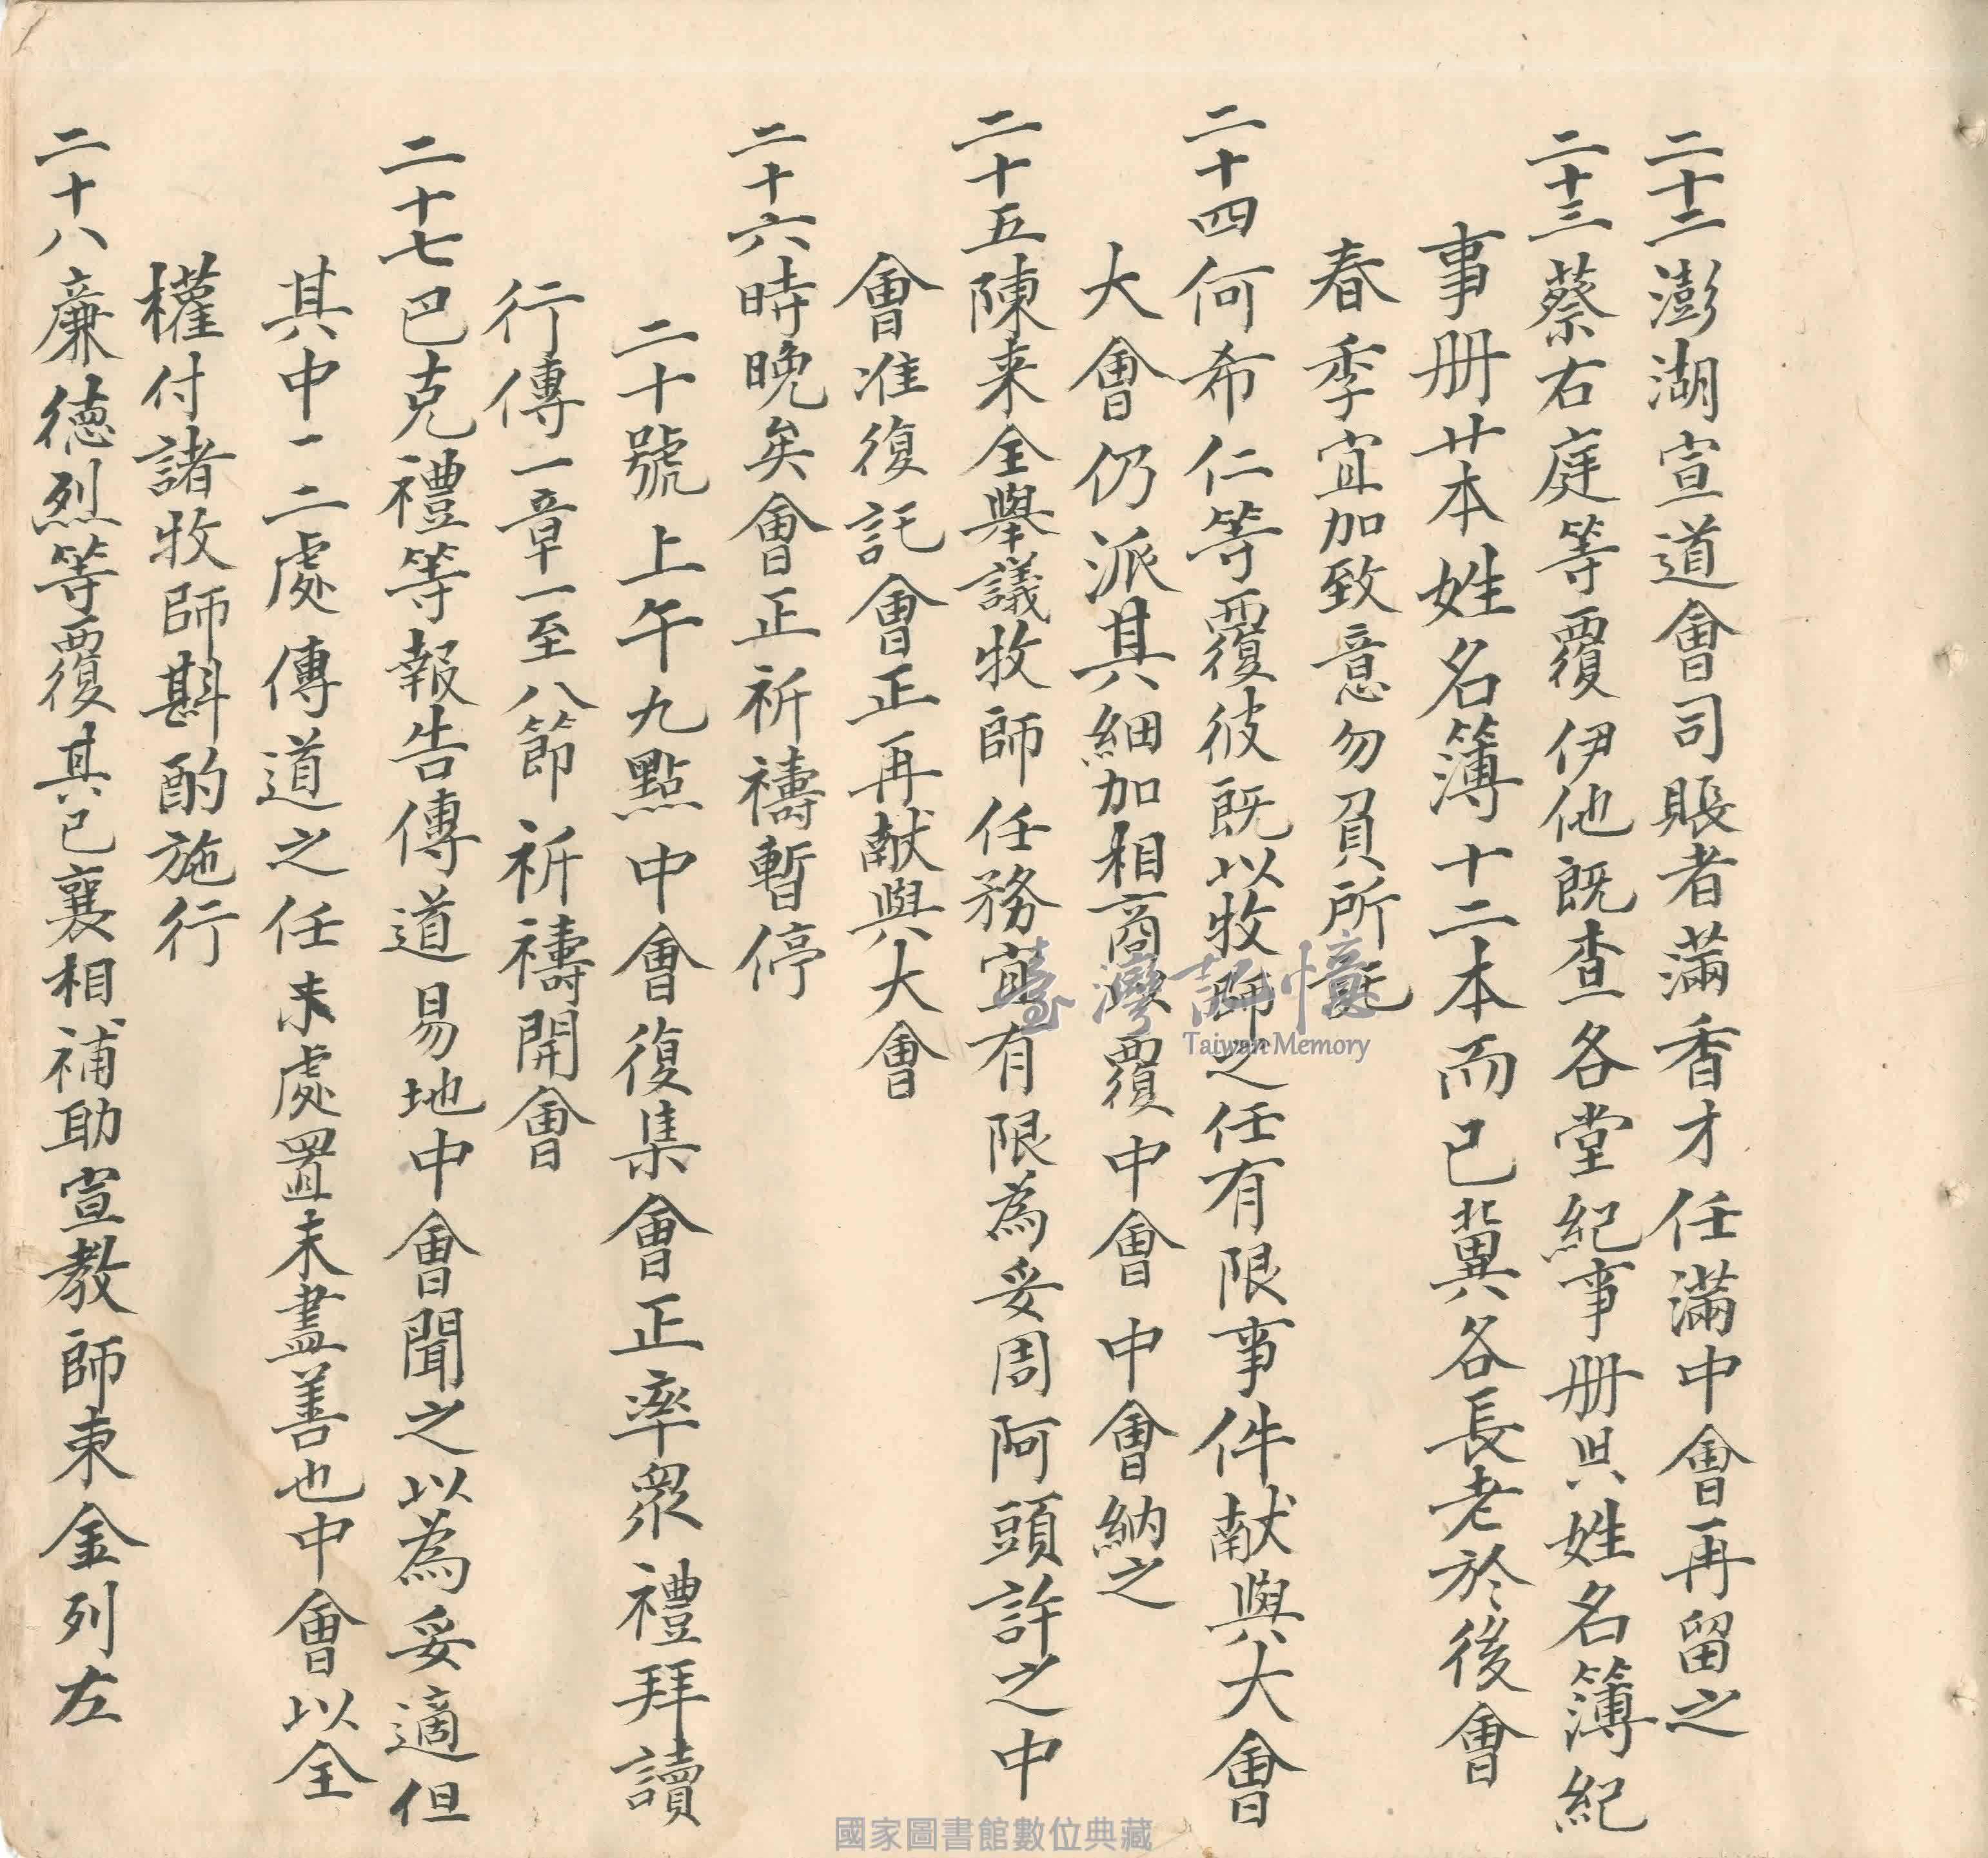 二十二澎湖宣道會司賬者滿香才任滿中會再留之
二十三蔡右庭等覆伊他既查各堂紀事册與姓名簿紀
事册廿本姓名簿十二本而已冀各長老於後會
春季宜加致意勿負所託
二十四何希仁等覆彼既以牧師之任有限事件献與大會
大會仍派其細加相商以覆中會中會納之
二十五陳来全舉議牧師任務宜有限為妥周阿頭許之中
會准復託會正再献與大會
二十六時晚矣會正祈禱暫停
二十號上午九點中會復集會正率眾禮拜讀
行傳一章一至八節祈禱開會
二十七巴克禮等報告傳道易地中會聞之以為妥適但
其中一二處傳道之任未處置未盡善也中會以全
權付諸牧師斟酌施行
二十八廉德烈等覆其已襄相補助宣教師束金列左
臺灣記憶
Taiwan Memory
國家圖書館數位典藏